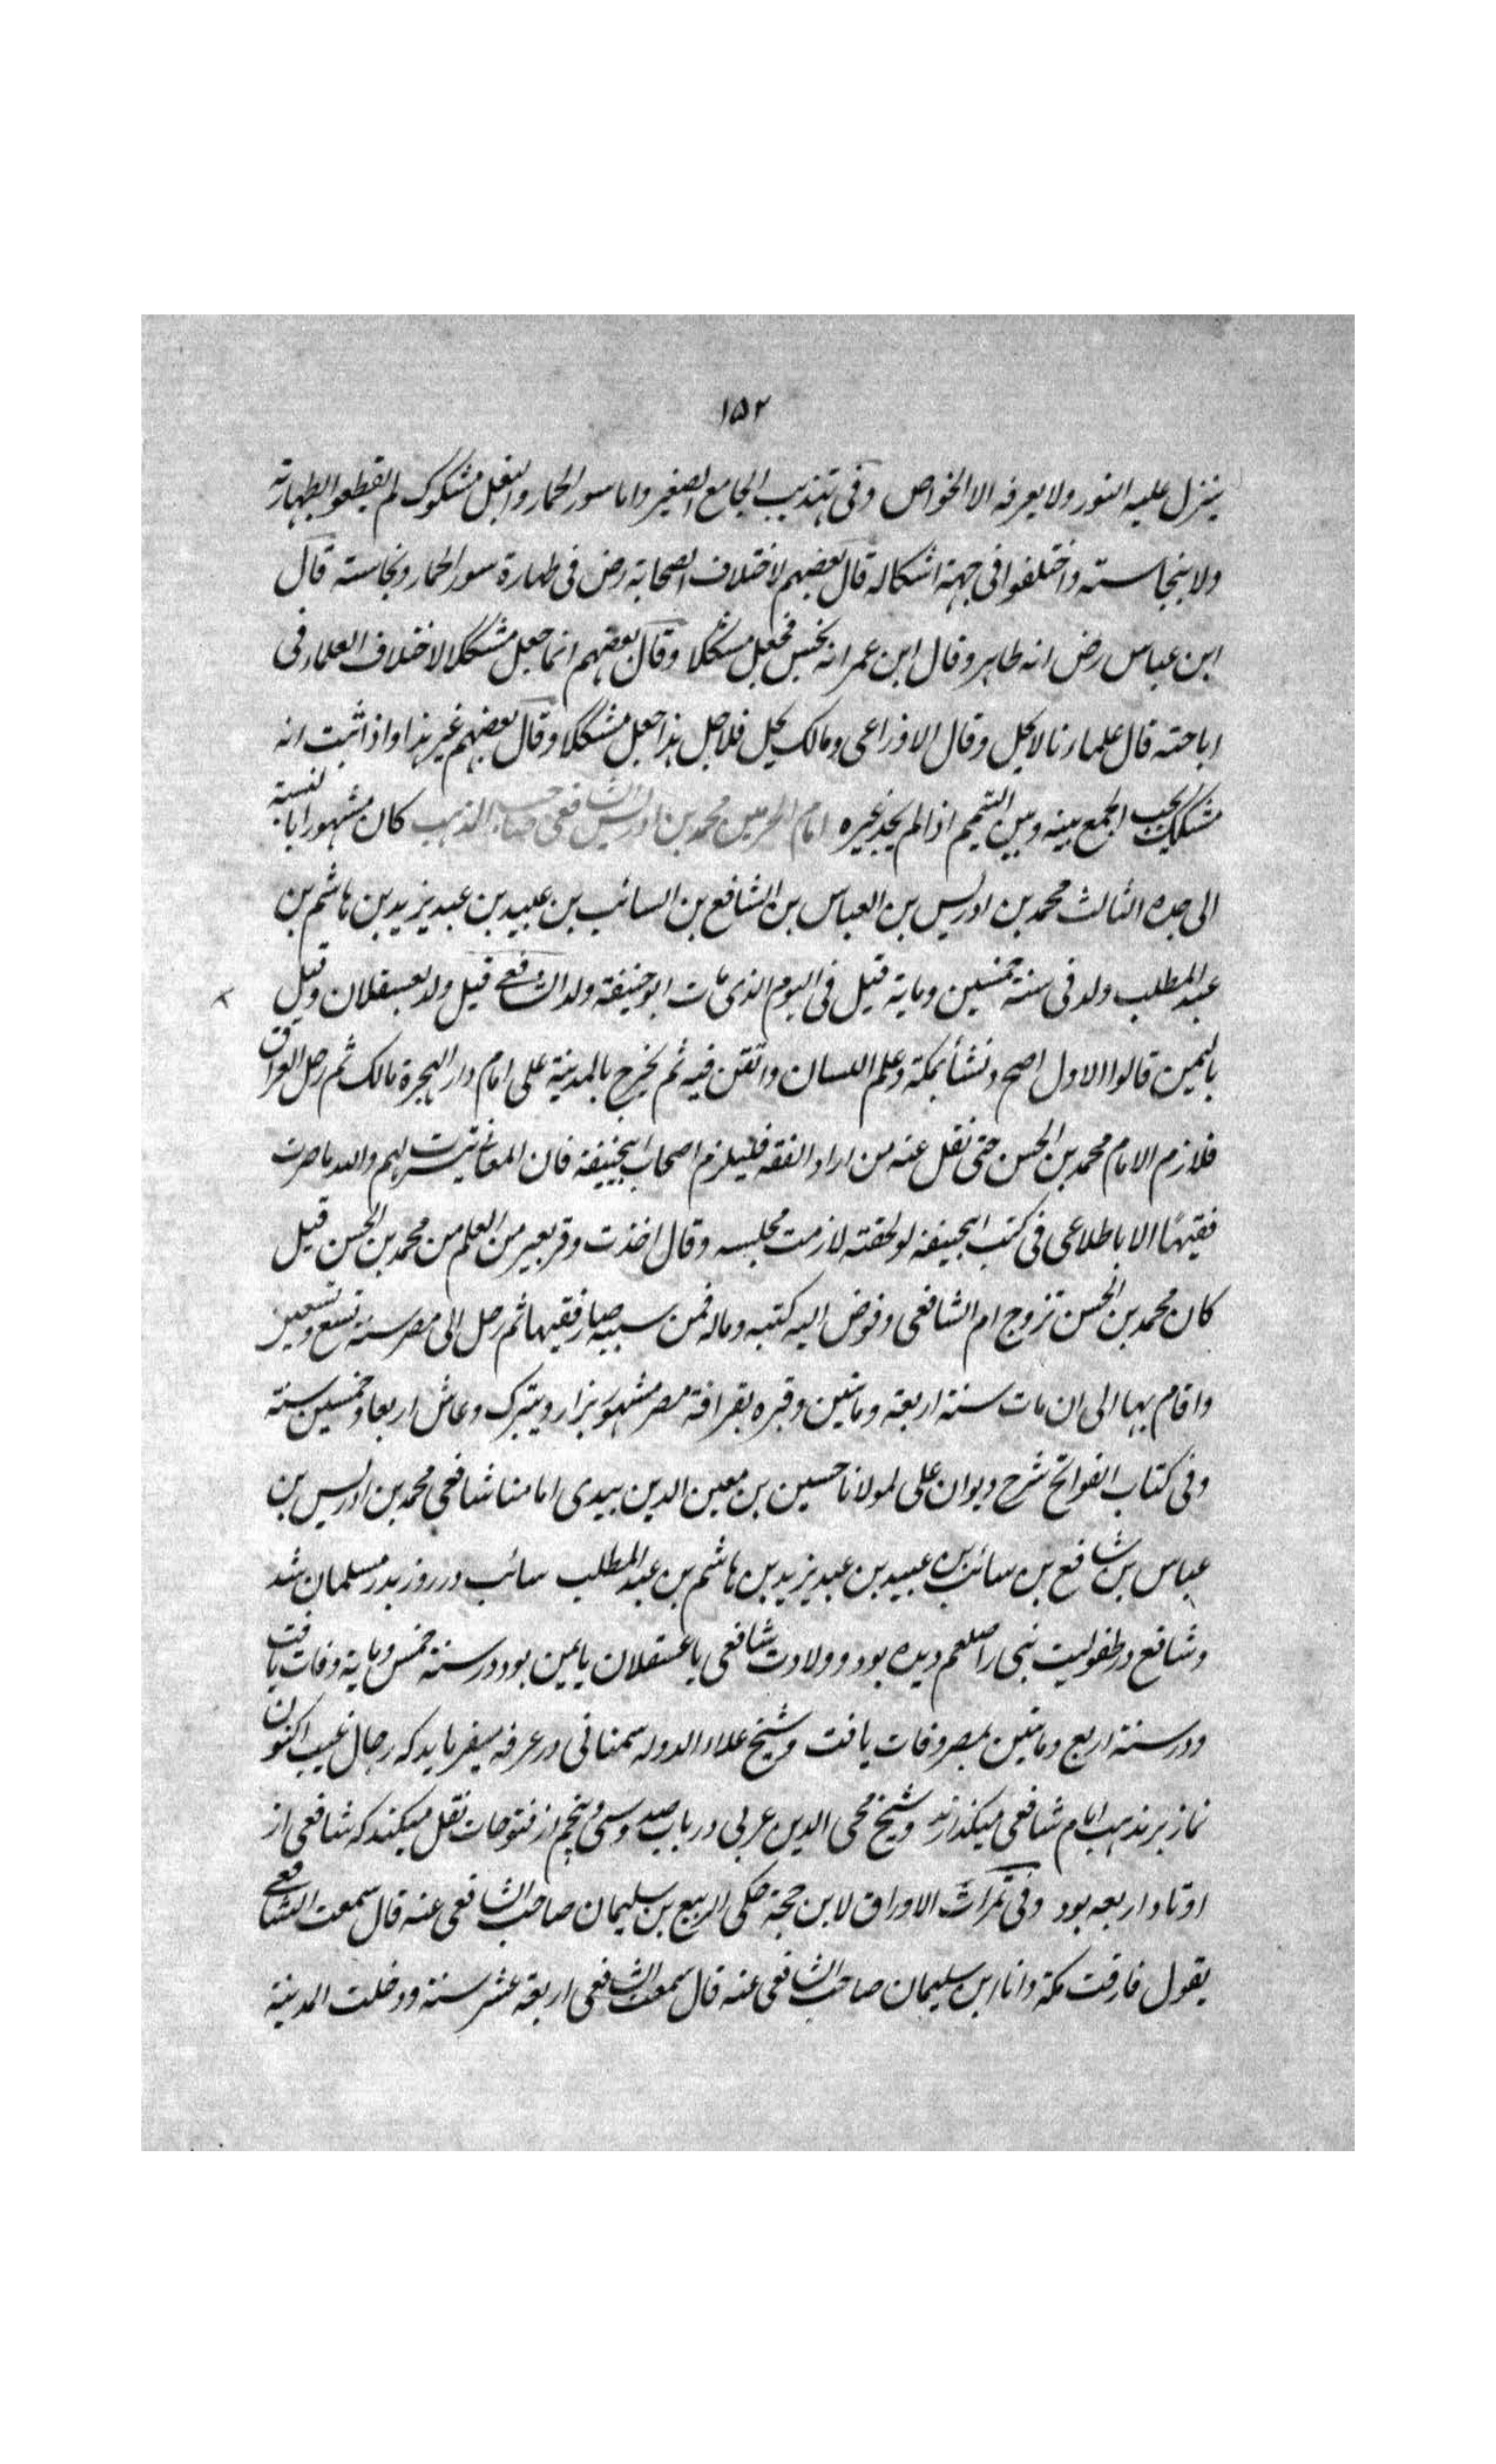 ١٥٢
ينزل عليه النور ولا يعرفه الا الخواص وفى تهذيب الجامع الصغير واما سور الحمار والبغل مشكوك لم يقطعوا بطهارته
ولا بنجاسته واختلفوا فى جهة اشكاله قال بعضهم لاختلاف الصحابة رض فى طهارة سور الحمار ونجاسته قال
ابن عباس رض انه طاهر وقال ابن عمر انه نجس فجعل مشكلا وقال بعضهم انما جعل مشكلا لاختلاف العلماء فى
اباحته قال علماءنا لا يحل وقال الاوزاعى ومالك يحل فلاجل هذا جعل مشكلا وقال بعضهم غير هذا واذا ثبت انه
مشكل يجب الجمع بينه وبين التيمم اذا لم يجد غيره امام الحرمين محمد بن ادريس الشافعى صاحب المذهب كان مشهورا بالنسبة
الى جده الثالث محمد بن ادريس بن العباس بن الشافع بن السائب بن عبيد بن عبد يزيد بن هاشم بن
عبد المطلب ولد فى سنة خمسين وماية قيل فى اليوم الذى مات ابو حنيفة ولد الشافعى قيل ولد بعسقلان وقيل
باليمين قالوا الاول اصح ونشأ بمكة وعلم اللسان واتقن فيه ثم تخرج بالمدينة على امام دار الهجرة مالك ثم رحل العراق
فلازم الامام محمد بن الحسن حتى نقل عنه من اراد الفقه فليلزم اصحاب ابيحنيفة فان المعانى تيسرت لهم والله ما صرت
فقيهًا الا باطلاعى فى كتب ابيحنيفة لو لحقته لازمت مجلسه وقال اخذت وقر بعير من العلم من محمد بن الحسن قيل
كان محمد بن الحسن تزوج ام الشافعى وفوض اليه كتبه وماله فمن سببه صار فقيها ثم رحل الى مصر سنة تسع وتسعين
واقام بها الى ان مات سنة اربعة وماتين وقبره بقرافة مصر مشهور يزار ويتبرك وعاش اربعا وخمسين سنة
وفى كتاب الفواتح شرح ديوان على لمولانا حسين بن معين الدين ميبدى امامنا شافعى محمد بن ادريس بن
عباس بن شافع بن سائب بن عبيد بن عبد يزيد بن هاشم بن عبد المطلب سائب در روز بدر مسلمان شد
وشافع در طفوليت نبى را صلعم ديده بود و ولادت شافعى يا عسقلان يا يمين بود در سنة خمس وماية وفات يافت
ودر سنة اربع وماتين بمصر وفات يافت وشيخ علاء الدوله سمنانى در عرفه ميفرمايد كه رجال غيب اكنون
نماز بر مذهب امام شافعى ميكذارند وشيخ محى الدين عربى در باب صد وسى وپنجم از فتوحات نقل ميكند كه شافعى از
اوتاد اربعه بود وفى ثمرات الاوراق لابن حجة حكى الربيع بن سليمان صاحب الشافعى عنه قال سمعت الشافعى
يقول فارقت مكة وانا ابن سليمان صاحب الشافعى عنه قال سمعت الشافعى اربعة عشر سنة ودخلت المدينة